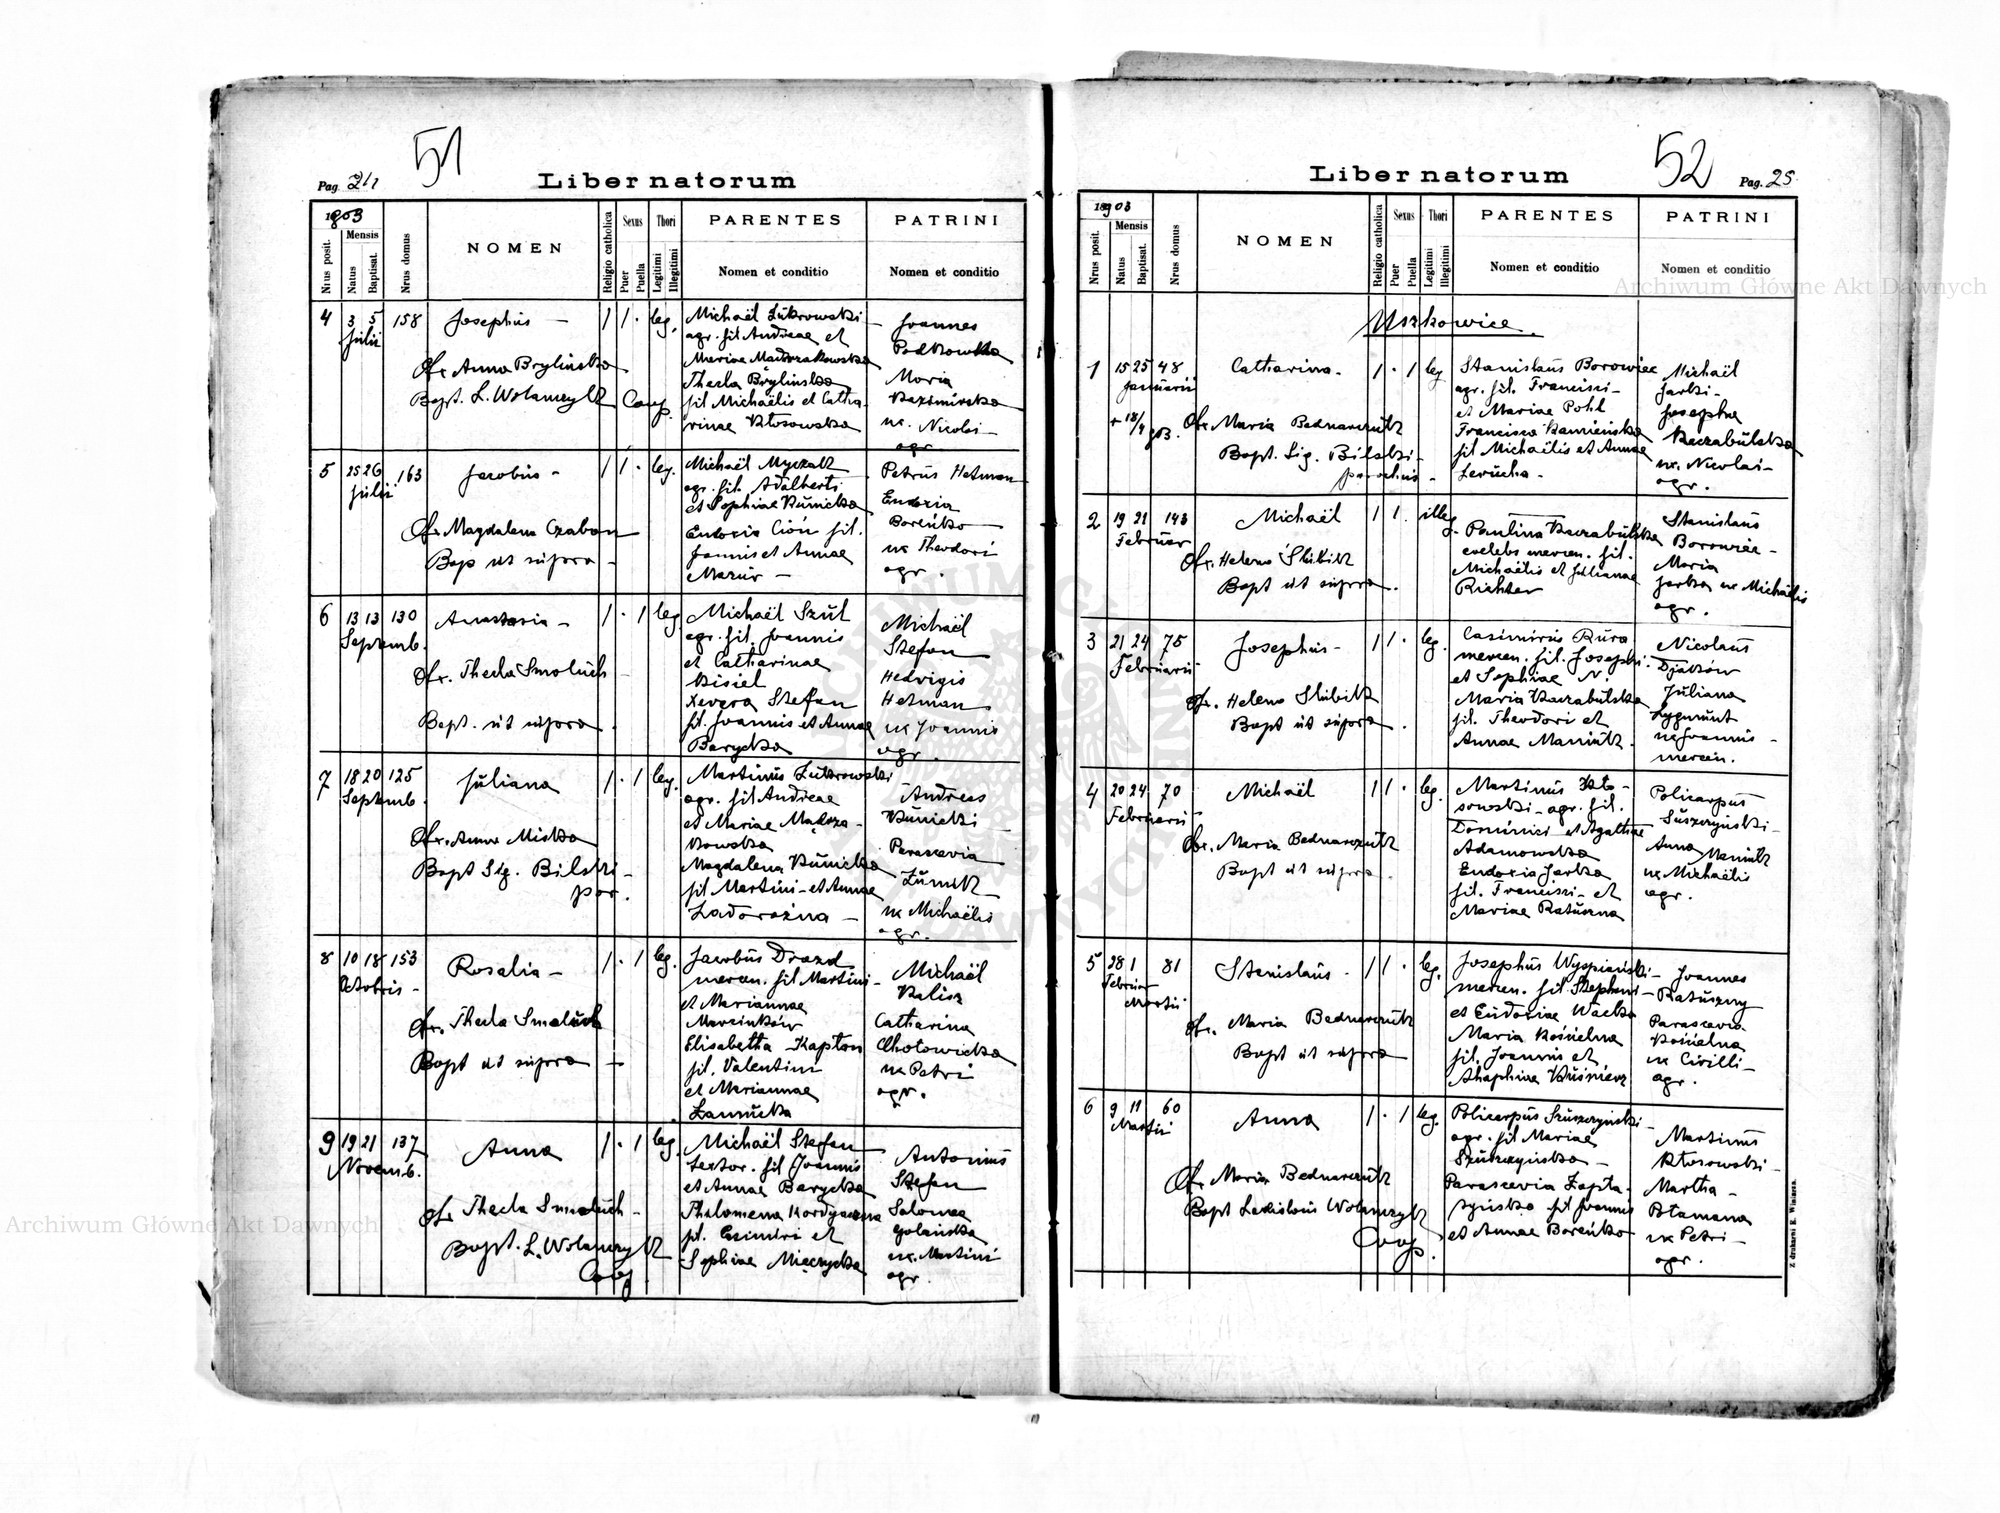 51
Pag. 24
Liber natorum
1903
Nrus posit.
Mensis
Natus
Baptisat.
Nrus domus
NOMEN
Religio catholica
Sexus
Puer
Puella
Thori
Legitimi
Illegitimi
PARENTES
Nomen et conditio
PATRINI
Nomen et conditio
4 3 5 158 Josephus — 1 1 · leg.
Julii
Obs. Anna Brylinska
Bapt. L. Wolanczyk Coop.
Michaël Zukrowski
agr. fil. Andreae et
Mariae
Thecla Brylinska
fil Michaëlis et Catha-
rinae Kłosowska
Joannes
Podkowka
Maria
Kazimirska
ux. Nicolai —
agr.
5 25 26 163 Jacobus — 1 1 · leg.
Julii
Obs. Magdalena Czaban
Bap ut supra —
Michaël Myczak
agr. fil. Adalberti
et Sophiae Kunicka
Eudoxia Cioń fil.
Joannis et Annae
Mazur —
Petrus Hetman
Eudoxia
Boreńko
ux Theodori
agr.
6 13 13 130 Anastasia — 1 · 1 leg
Septemb.
Obs. Thecla Smoluch
Bapt. ut supra
Michaël Szul
agr. fil. Joannis
et Catharinae
Kisiel
Xevera Stefan
fil. Joannis et Annae
Barycka
Michaël
Stefan
Hedvigis
Hetman
ux Joannis
agr.
7 18 20 125 Juliana 1 · 1 leg.
Septemb.
Obs. Anna Miska
Bapt Sig. Bilski —
par.
Martinus Zukrowski
agr. fil Andreae
et Mariae Mądrza-
kowska
Magdalena Kunicka
fil Martini — et Annae
Zadorożna —
Andreas
Kunicki
Parascevia
Zunik
ux Michaëlis
agr.
8 10 18 153 Rosalia — 1 · 1 leg.
Octobris —
Obs. Thecla Smoluch
Bapt ut supra —
Jacobus Drozd
mercen. fil Martini —
et Mariannae
Marcinków
Elisabetha Kapłon
fil. Valentini
et Mariannae
Michaël
Kalisz
Catharina
Chotowicka
ux Petri
agr.
9 19 21 137 Anna 1 · 1 leg.
Novemb.
Obs Thecla Smoluch —
Bapt. L. Wolanczyk
Coop.
Michaël Stefan
textor. fil Joannis
et Annae Barycka
Philomena
fil. Casimiri et
Sophiae Mięczycka
Antonius
Stefan
Salomea
Golańska
ux. Martini
agr.
52
Liber natorum
Pag. 25
1903
Nrus posit.
Mensis
Natus
Baptisat.
Nrus domus
NOMEN
Religio catholica
Sexus
Puer
Puella
Thori
Legitimi
Illegitimi
PARENTES
Nomen et conditio
PATRINI
Nomen et conditio
Uszkowice
1 15 25 48 Catharina — 1 · 1 leg
Januarii
+ 18/4 903.
Obs. Maria Bednarczuk
Bapt. Sig. Bilski —
parochus —
Stanislaus Borowiec
agr. fil. Francisci —
et Mariae Pohl
Francisca Kamieńska
fil Michaëlis et Annae
Michaël
Jarki —
Josepha
Kaczabulska
ux. Nicolai —
agr.
2 19 21 143 Michaël 1 1 · illeg.
Februar
Obs. Helena Skibik
Bapt ut supra
Paulina Kaczabulska
caelebs mercen. fil.
Michaëlis et Julianae
Richter
Stanislaus
Borowiec —
Maria
Jarka ux Michaëlis
agr.
3 21 24 75 Josephus — 1 1 · leg.
Februarii
Obs. Helena Skibik
Bapt ut supra
Casimirus Rura
mercen. fil. Josephi
et Sophiae N.
Maria Kaczabulska
fil. Theodori et
Annae Maniuk.
Nicolaus
Djaków
Juliana
Zygmunt
ux Joannis —
mercen.
4 20 24 70 Michaël 1 1 · leg.
Februarii
Obs. Maria Bednarczuk
Bapt ut supra
Martinus Kło-
sowski — agr. fil.
Dominici et Agathae
Adamowska
Eudoxia Jarka
fil. Francisci — et
Mariae Ratuszna
Policarpus
Suszczyński —
Anna Maniuk
ux Michaëlis
agr.
5 28 1 81 Stanislaus — 1 1 · leg.
Februar
Martii
Obs. Maria Bednarczuk
Bapt ut supra
Josephus Wyspiański —
mercen. fil Stephani —
et Eudoxiae Wacka
Maria Kościelna
fil. Joannis et
Agaphiae Kuśnierz
Joannes
Ratuszny
Parascevia
Kościelna
ux Cirilli —
agr.
6 9 11 60 Anna 1 · 1 leg.
Martii
Obs. Maria Bednarczuk
Bapt Ladislaus Wolanczyk
Coop.
Policarpus Szuszczyński —
agr. fil Mariae
Szuszczyńska —
Parascevia Zapła-
tyńska fil Joannis
et Annae Boreńko
Martinus
Kłosowski —
Martha —
Błamana
ux Petri —
agr.
Z drukarni E. Winiarza.
Archiwum Główne Akt Dawnych
Archiwum Główne Akt Dawnych